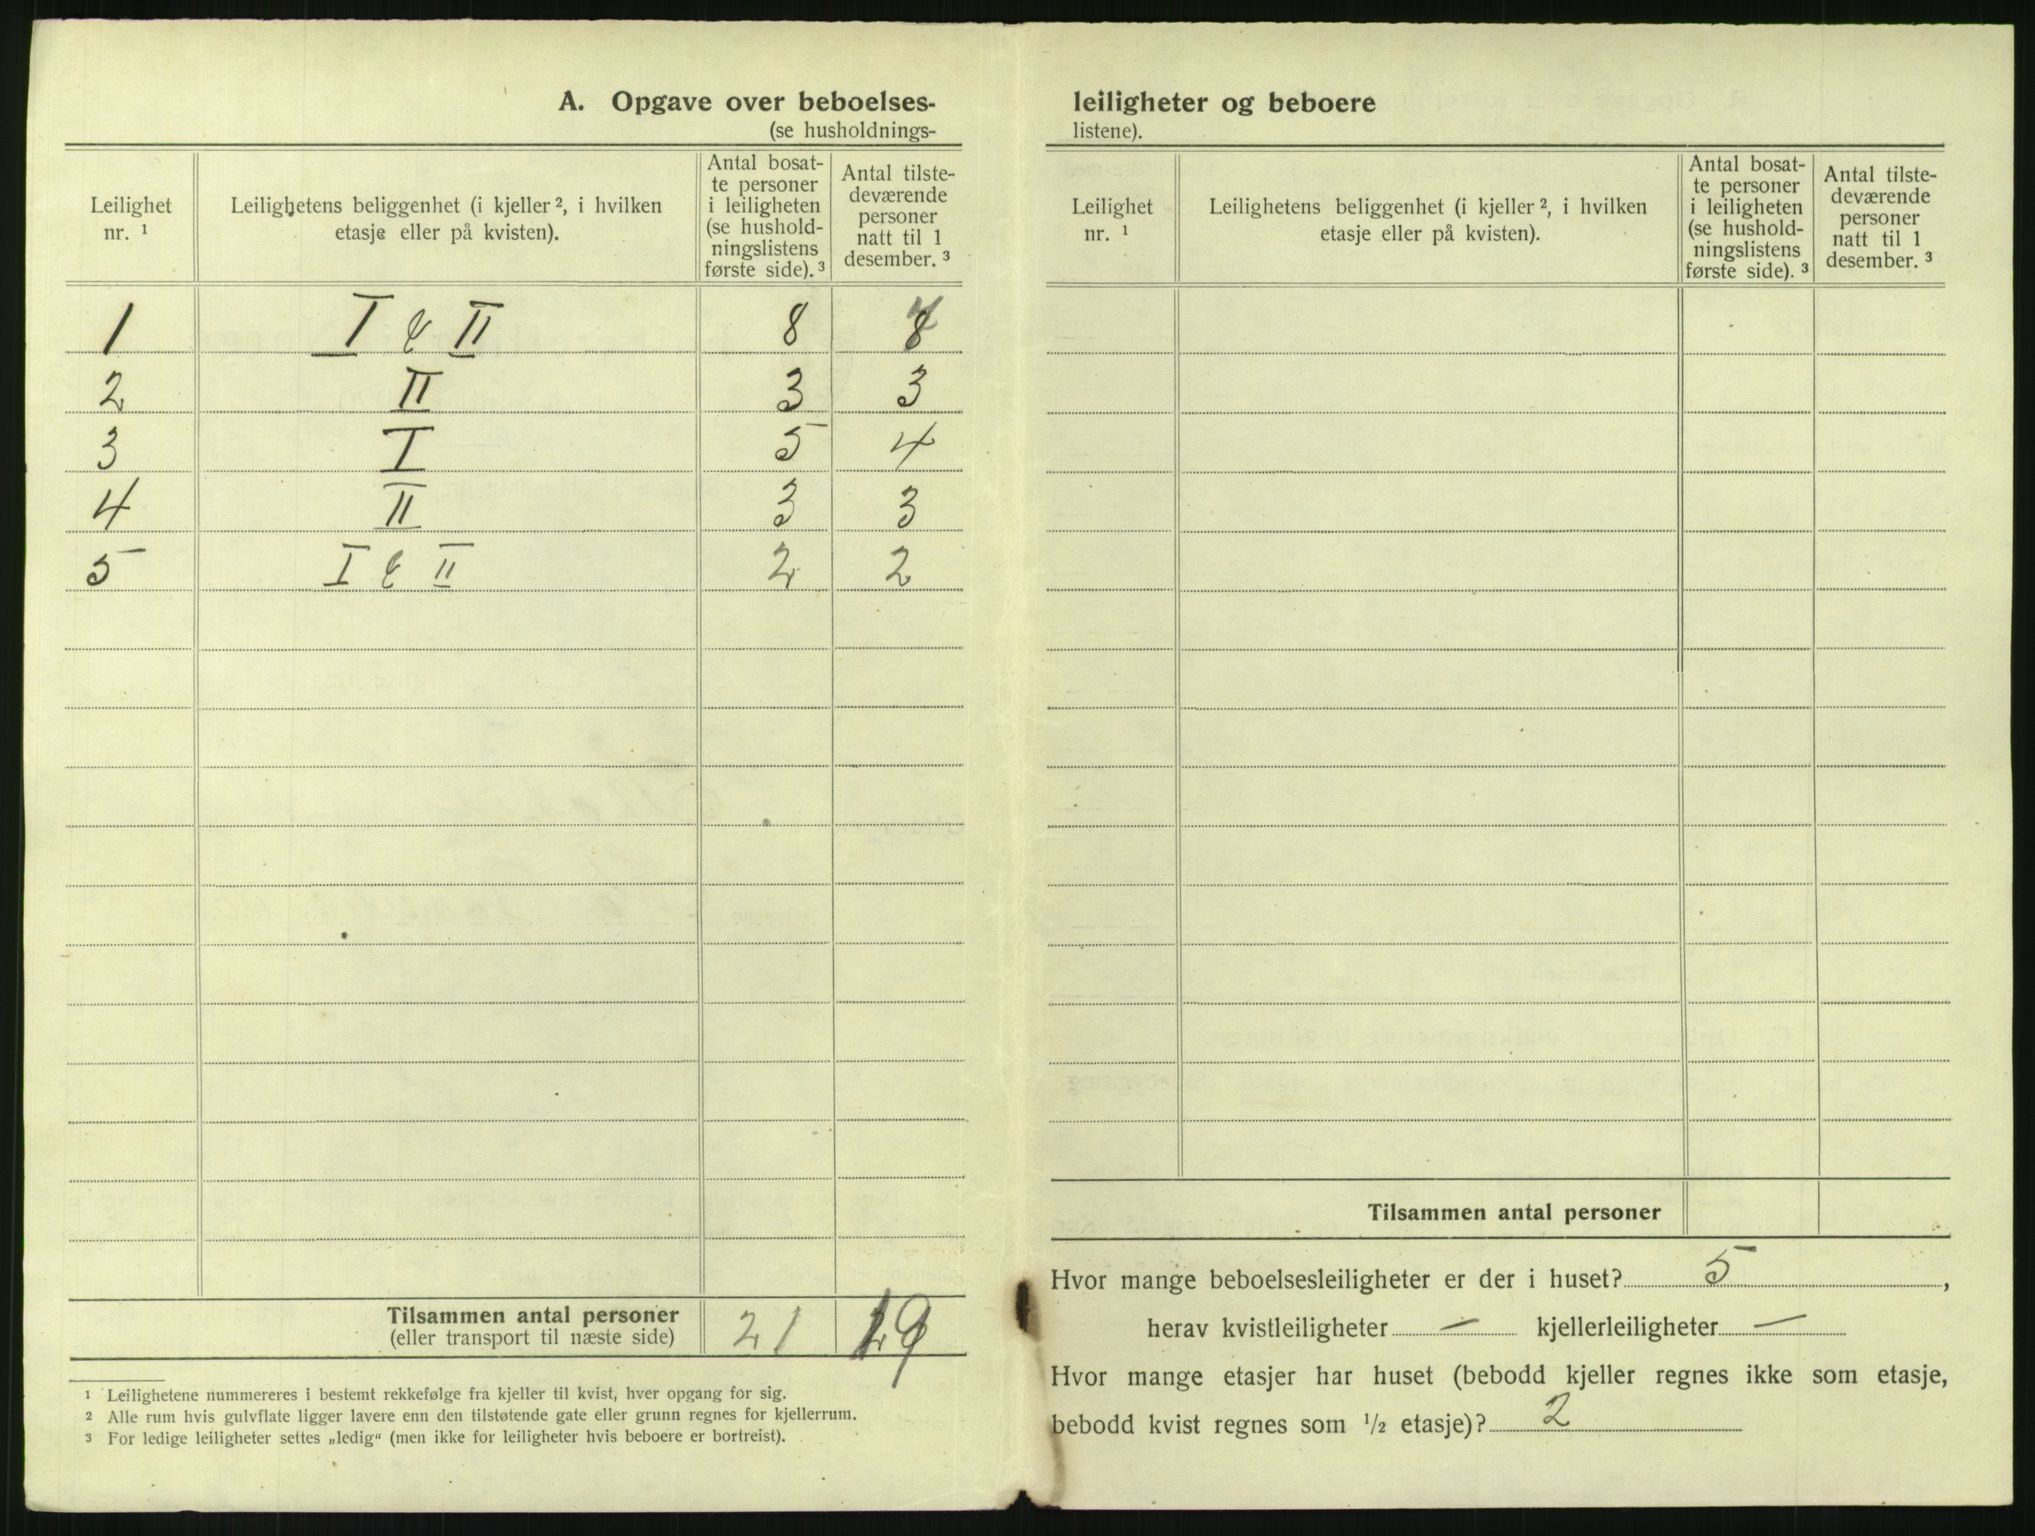 A. Opgave over beboelses-
(se husholdnings-
Leilighet nr. ¹
Leilighetens beliggenhet (i kjeller ², i hvilken etasje eller på kvisten).
Antal bosat-
te personer
i leiligheten
(se hushold-
ningslistens
første side). ³
Antal tilste-
deværende
personer
natt til 1
desember. ³
1 I & II 8
2 II 3 3
3 I 5 4
4 II 3 3
5 I & II 2 2
Tilsammen antal personer 21
(eller transport til næste side)
¹ Leilighetene nummereres i bestemt rekkefølge fra kjeller til kvist, hver opgang for sig.
² Alle rum hvis gulvflate ligger lavere enn den tilstøtende gate eller grunn regnes for kjellerrum.
³ For ledige leiligheter settes „ledig“ (men ikke for leiligheter hvis beboere er bortreist).
leiligheter og beboere
listene).
Leilighet nr. ¹
Leilighetens beliggenhet (i kjeller ², i hvilken etasje eller på kvisten).
Antal bosat-
te personer
i leiligheten
(se hushold-
ningslistens
første side). ³
Antal tilste-
deværende
personer
natt til 1
desember. ³
Tilsammen antal personer
Hvor mange beboelsesleiligheter er der i huset? 5 ,
herav kvistleiligheter — kjellerleiligheter —
Hvor mange etasjer har huset (bebodd kjeller regnes ikke som etasje,
bebodd kvist regnes som ½ etasje)? 2